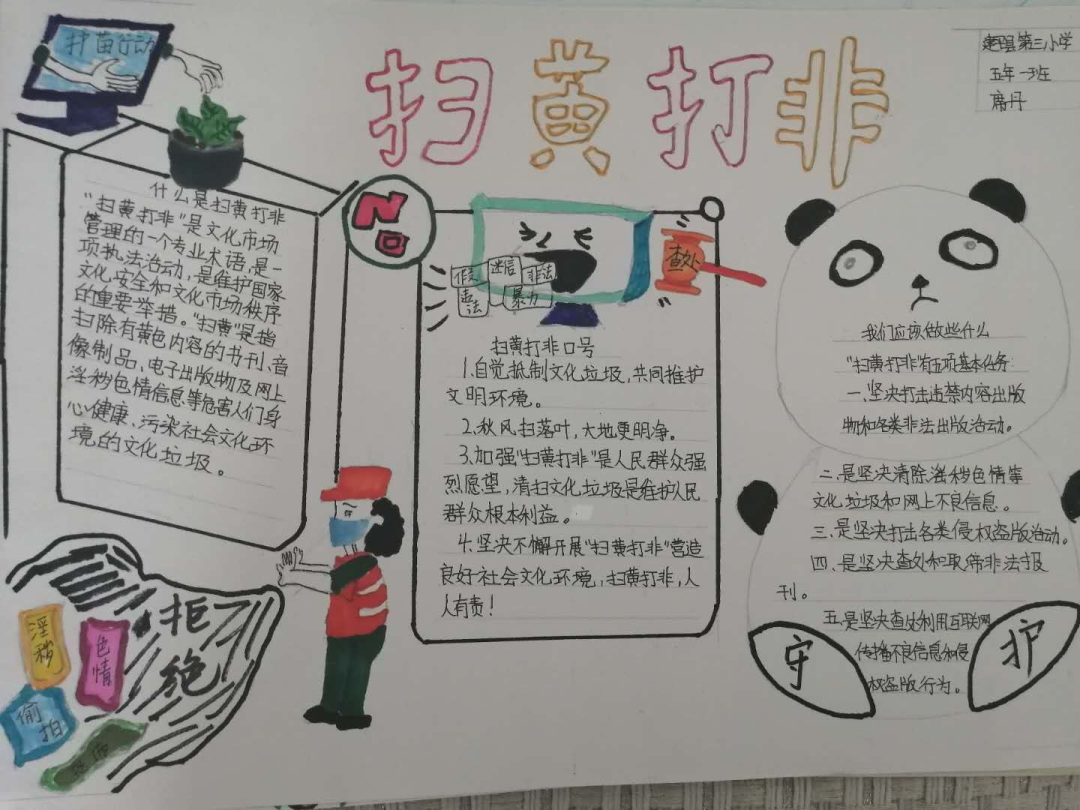 护苗行动
扫黄打非
第三小学
五年一班
席丹
什么是扫黄打非
"扫黄打非"是文化市场
管理的一个专业术语,是一
项执法活动,是维护国家
文化安全和文化市场秩序
的重要举措。"扫黄"是指
扫除有黄色内容的书刊、音
像制品、电子出版物及网上
淫秽色情信息等危害人们身
心健康、污染社会文化环
境的文化垃圾。
20
迷信
非法
暴力
查处
扫黄打非口号
1.自觉抵制文化垃圾,共同维护
文明环境。
2.秋风扫落叶,大地更明净。
3.加强"扫黄打非"是人民群众强
烈愿望,清扫文化垃圾是维护人民
群众根本利益。
4.坚决不懈开展"扫黄打非"营造
良好社会文化环境,扫黄打非,人
人有责!
我们应该做些什么
"扫黄打非有五项基本任务:
一.坚决打击违禁内容出版
物和各类非法出版活动。
二.是坚决清除淫秽色情等
文化垃圾和网上不良信息。
三.是坚决打击各类侵权盗版活动。
四.是坚决查处和取缔非法报
刊。
五.是坚决查处利用互联网
传播不良信息和侵
权盗版行为。
守
护
拒
绝
淫秽
色情
偷拍